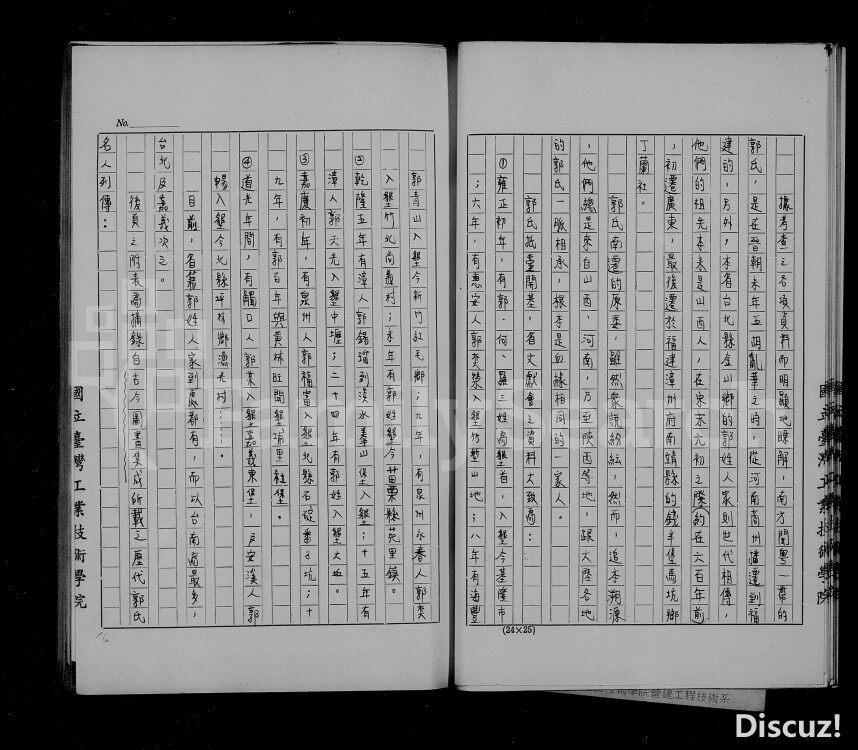 據考查之各項資料而明顯地瞭解,南方閩粵一帶的
郭氏,是在晉朝末年五胡亂華之時,從河南商州播遷到福
建的,另外,本省台北縣金山鄉的郭姓人家則世代相傳,
他們的祖先本來是山西人,在宋末元初之際(約在六百年前
,初遷廣東,最後遷於福建漳州府南靖縣的錢半堡馬坑鄉
丁蘭社。
郭氏南遷的原委,雖然眾說紛紜,然而,追本溯源
,他們總是來自山西,河南,乃至陝西等地,跟大陸各地
的郭氏一脈相承,根本是血緣相同的一家人。
郭氏抵臺開基,省文獻會之資料大致為:
①雍正初年,有郭、何、羅三姓為墾首,入墾今基隆市
;六年,有惠安人郭奕榮入墾竹塹山地;八年有海豐
(24×25)
國立臺灣工業技術學院
No.
郭青山入墾今新竹紅毛鄉;九年,有泉州永春人郭奕
入墾竹北尚義村;末年有郭姓墾今苗栗縣苑里鎮。
②乾隆五年有漳人郭錫瑠到淡水拳山堡入墾;十五年有
漳人郭天光入墾中壢;二十四年有郭姓入墾大
③嘉慶初年,有泉州人郭福富入墾北縣石碇番子坑;十
九年,有郭百年與黃林旺開墾埔里社堡。
④道光年間,有觸口人郭某入墾嘉義東堡,反安溪人郭
暢入墾今北縣坪林鄉漁光村……。
目前,省籍郭姓人家到處都有,而以台南為最多,
台北及嘉義次之。
後頁之附表為摘錄自古今圖書集成所載之歷代郭氏
名人列傳:
國立臺灣工業技術學院
16
技術學院營建工程技術系
Discuz!